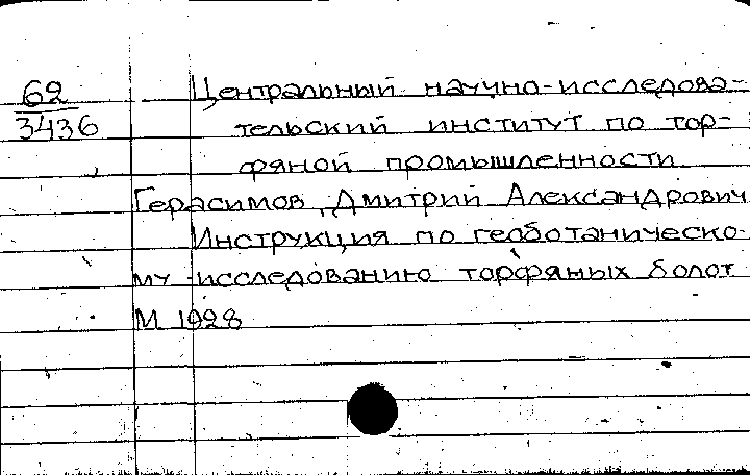 62 Центральный научно-исследова-
3436 тельский институт по тор-
фяной промышленности
Герасимов, Дмитрий Александрович
Инструкция по геоботаническо-
му исследованию торфяных болот
М 1928